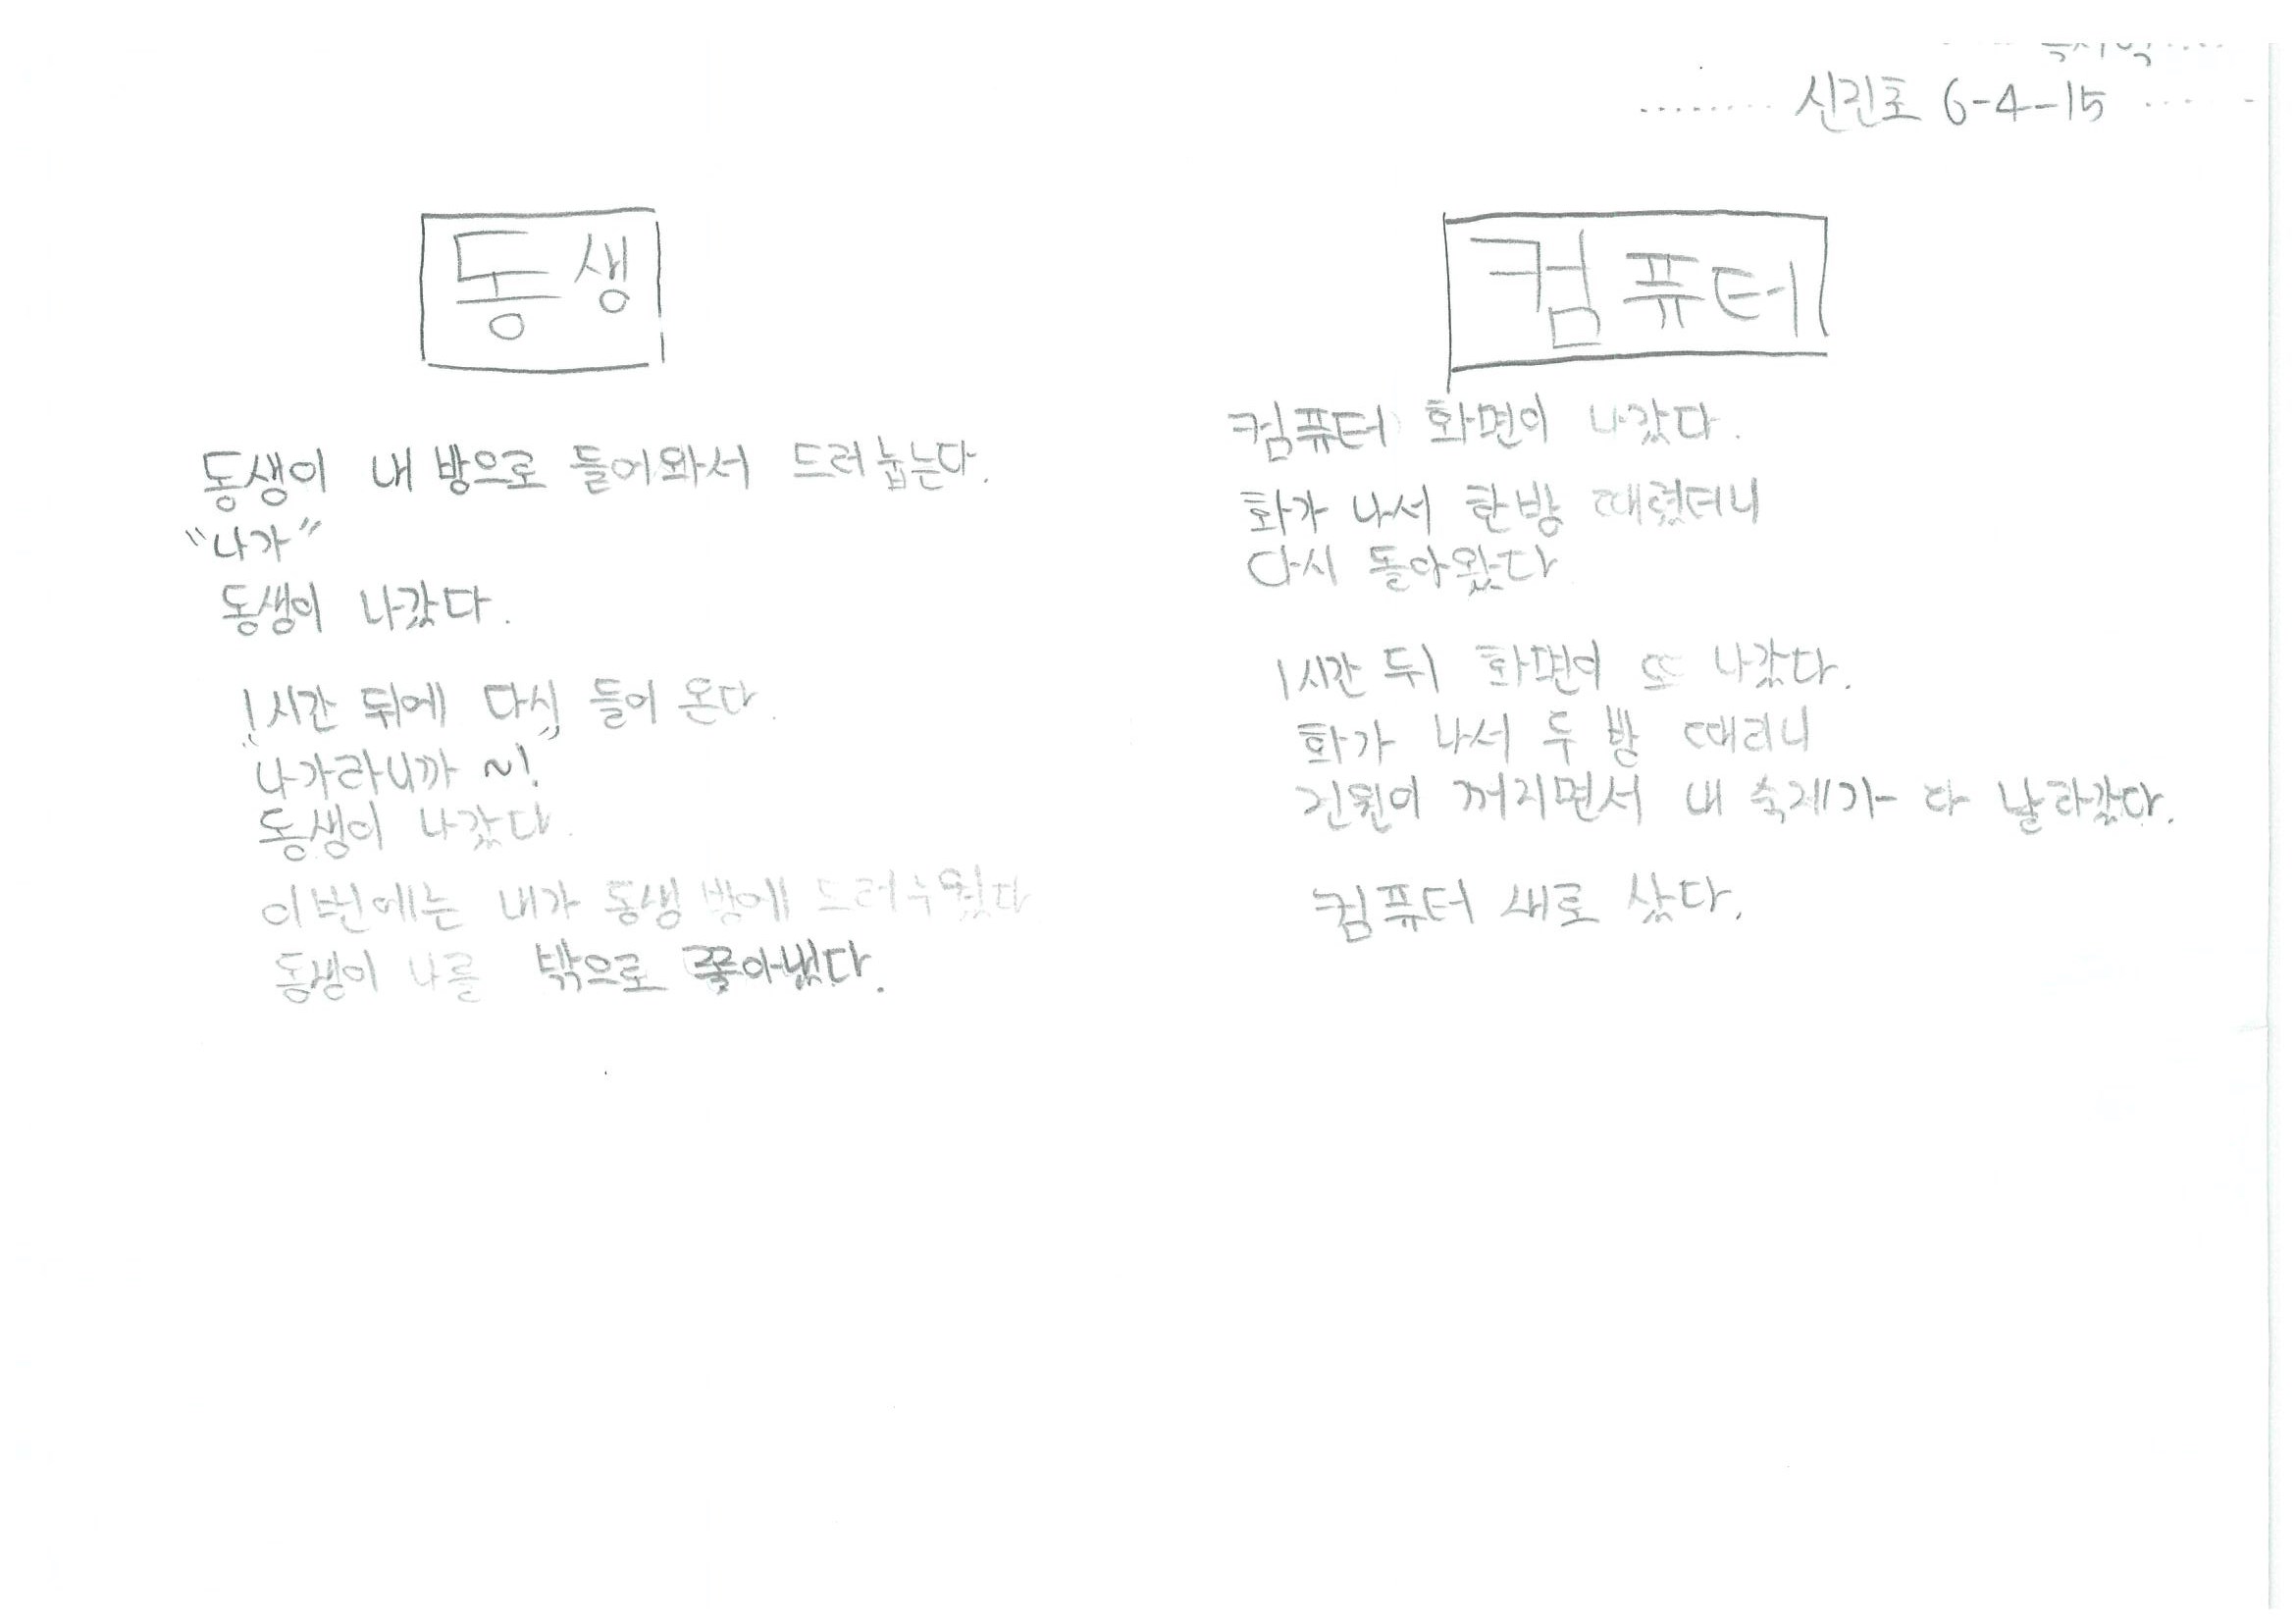 신진초 6-4-15
동생
동생이 내 방으로 들어와서 드러눕는다.
"나가"
동생이 나갔다.
1시간 뒤에 다시 들어 온다.
"나가라니까~!"
동생이 나갔다.
이번에는 내가 동생 방에 드러누웠다
동생이 나를 밖으로 쫓아냈다.
컴퓨터
컴퓨터 화면이 나갔다.
화가 나서 한방 때렸더니
다시 돌아왔다
1시간 뒤 화면이 또 나갔다.
화가 나서 두 방 때리니
전원이 꺼지면서 내 숙제가 다 날라갔다.
컴퓨터 새로 샀다.